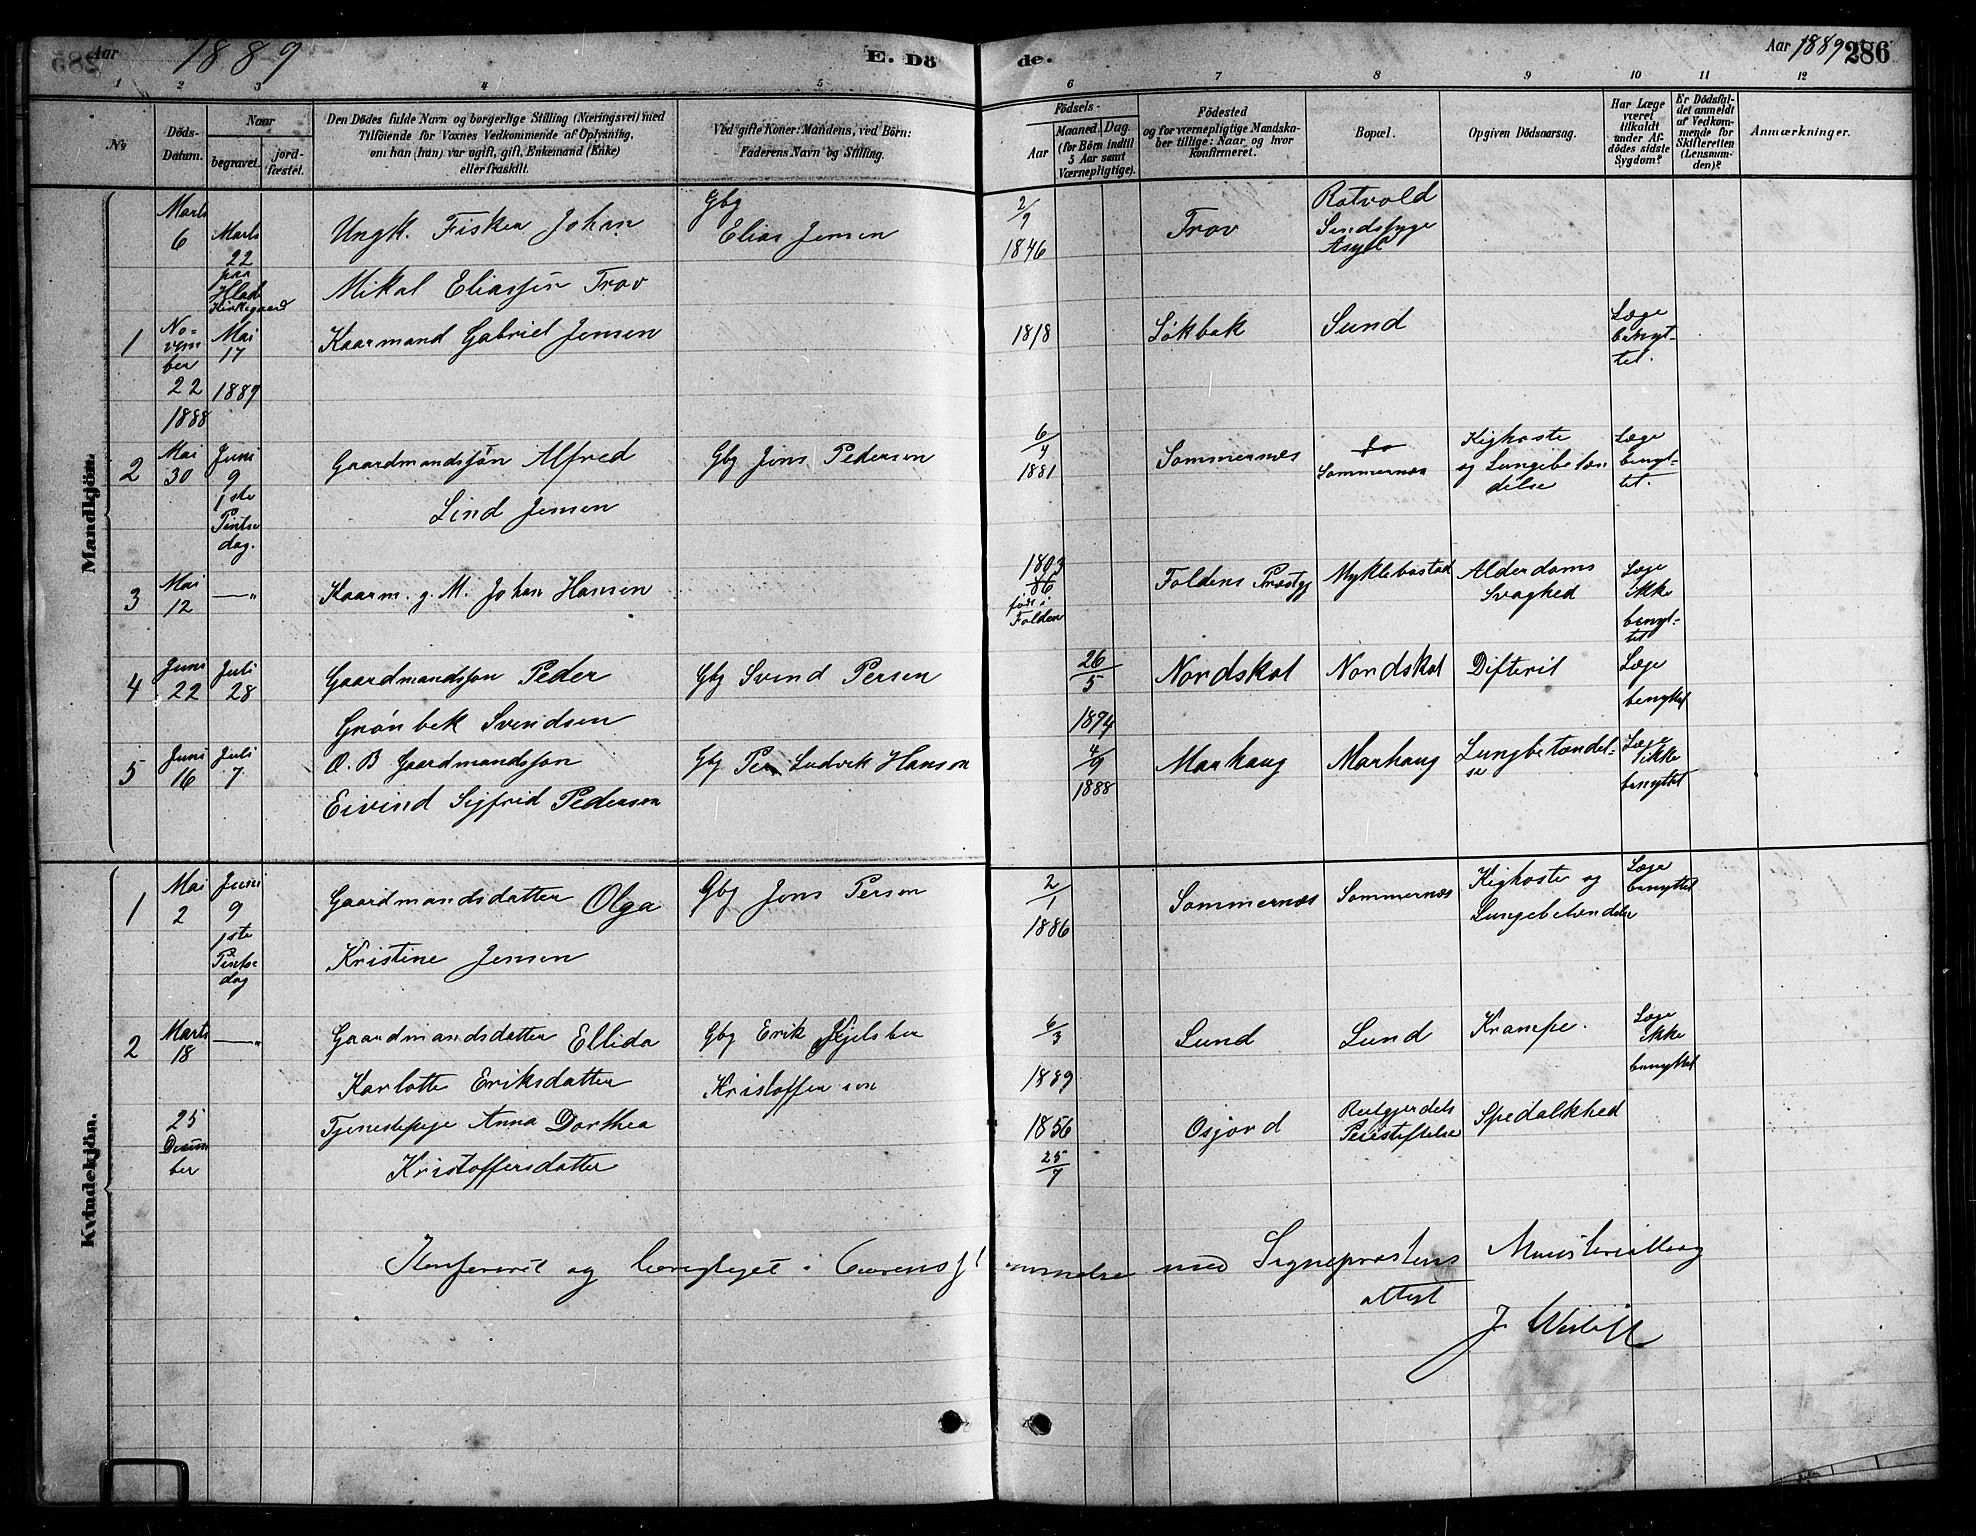 Aar 1889
E. Dö
de.
Aar 1889 286
1 2 3 4 5 6 7 8 9 10 11 12
No
Döds-
Datum.
Naar
begravet.
jord-
fæstet.
Den Dödes fulde Navn og borgerlige Stilling (Næringsvei) med
Tilføiende for Voxnes Vedkommende af Oplysning,
om han (hun) var ugift, gift, Enkemand (Enke)
eller fraskilt.
Ved gifte Koner: Mandens, ved Börn:
Faderens Navn og Stilling.
Födsels-
Aar
Maaned.
Dag.
(for Børn indtil
5 Aar samt
Værnepligtige).
Födested
og for værnepligtige Mandska-
ber tillige: Naar og hvor
konfirmeret.
Bopæl.
Opgiven Dödsaarsag.
Har Læge
været
tilkaldt
under Af-
dödes sidste
Sygdom?
Er Dödsfal-
det anmeldt
af Vedkom-
mende for
Skifteretten
(Lensman-
den)?
Anmærkninger.
Mandkjön.
Marts
6
Marts
22
paa
Hlade
Kirkegaard
Ungk. Fisker Johan
Mikal Eliassen Trov
Gbg
Elias Jensen
2/9
1846
Trov
Rotvold
Sindsyge
Asyl
1
No-
vem
ber
22
1888
Mai
17
1889
Kaarmand Gabriel Jensen
1818
Løkbak
Sund
Læge
benyt-
tet.
2
Mai
30
Juni
9
1ste
Pintse
dag.
Gaardmandssøn Alfred
Lind Jensen
Gbg Jens Pedersen
6/4
1881
Sommernæs
do
Sommernæs
Kighoste
og Lungebetæn
delse
Læge
benyt-
tet.
3
Mai
12
—"
Kaarm. g. M. Johan Hansen
1803
16
født i
Folden
Foldens Præstgj
Myklebostad
Alderdoms
Svaghed
Læge
Ikke
benyt-
tet
4
Juni
22
Juli
28
Gaardmandssøn Peder
Grønbek Svendsen
Gbg Svend Persen
26/5
1874
Nordskot
Nordskot
Difterit
Læge
benyttet
5
Juni
16
Juli
7
O. B Gaardmandssøn
Eivind Sigfrid Pedersen
Gbg Per Ludvik Hanson
4/9
1888
Marhaug
Marhaug
Lungbetændel-
se
Læge
ikke
benyttet
Kvindekjön.
1
Mai
2
Juni
9
1ste
Pintse
dag
Gaardmandsdatter Olga
Kristine Jensen
Gbg Jens Person
2/1
1886
Sommernæs
Sommernæs
Kighoste og
Lungebetændelse
Læge
benyttet
2
Marts
18
—"
Gaardmandsdatter Ellida
Karlotte Eriksdatter
Gbg Erik Kjelsber
Kristoffersen
6/3
1889
Lund
Lund
Krampe.
Læge
Ikke
benyttet
25
Decem
ber
Tjenestepige Anna Dorthea
Kristoffersdatter
1856
25/7
Osjord
Reitgjerdets
Pleiestiftelse
Spedalskhed
Konfereret og berigtiget i Overensst
emmelse med Sogneprestens Ministerialbog
attest
J.